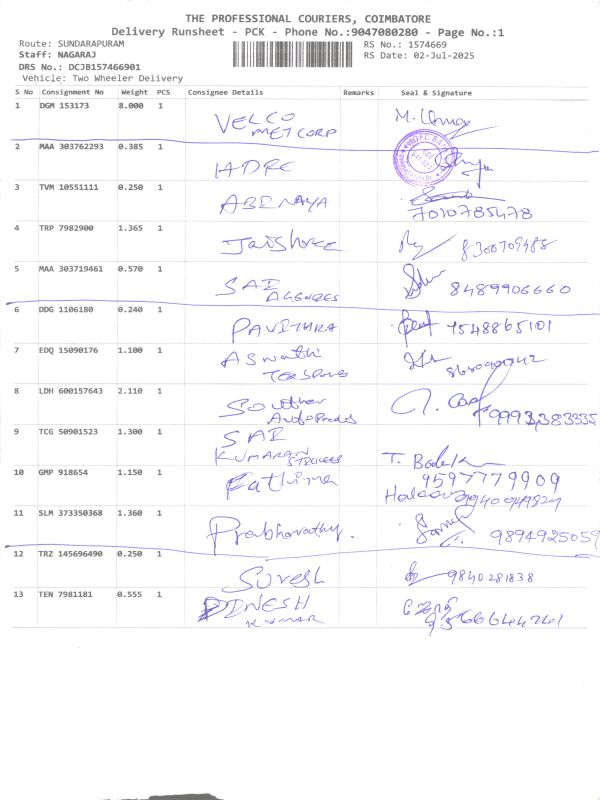 THE PROFESSIONAL COURIERS, COIMBATORE
Delivery Runsheet - PCK - Phone No.:9047080280 - Page No.:1
Route: SUNDARAPURAM
RS No.: 1574669
Staff: NAGARAJ
RS Date: 02-Jul-2025
DRS No.: DCJB157466901
Vehicle: Two Wheeler Delivery
S No Consignment No Weight PCS Consignee Details Remarks Seal & Signature
1 DGM 153173 8.000 1 VELCO
METCORP
2 MAA 303762293 0.385 1 HDFC
3 TVM 10551111 0.250 1 ABINAYA
7010785478
4 TRP 7982900 1.365 1 Jaishree
5 MAA 303719461 0.570 1 SAI 8489906660
AGENCIES
6 DDG 1106180 0.240 1 PAVITHRA 7548865101
7 EDQ 15090176 1.100 1 ASwathi
8 LDH 600157643 2.110 1 Souther
9 TCG 50901523 1.300 1 SAI
KUMARAN
10 GMP 918654 1.150 1 Fathima 9597779909
11 SLM 373350368 1.360 1 Prabhavathy. 9894925059
12 TRZ 145696490 0.250 1 SURESH 9840281838
13 TEN 7981181 0.555 1 DINESH
KUMAR